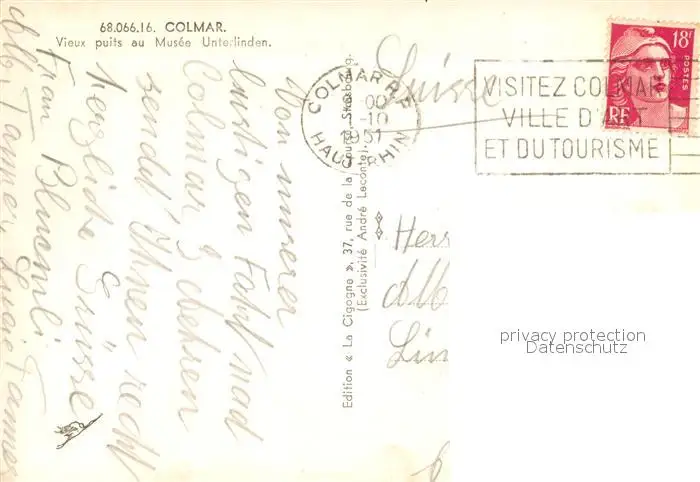 68.066.16. COLMAR.
Vieux puits au Musée Unterlinden.
Von unserer
lustigen Fahrt nad
Colmar
sendet Ihnen recht
herzliche Grüsse
Frau
Tanner
Tanner
Edition « La Cigogne », 37, rue de la Course, Strasbourg.
(Exclusivité André Leconte)
Suisse
COLMAR R.P.
00
1-10
1951
HAUT-RHIN
VISITEZ COLMAR
VILLE D'ART
ET DU TOURISME
18F
POSTES
RF
Herr
Alb
Lin
privacy protection
Datenschutz